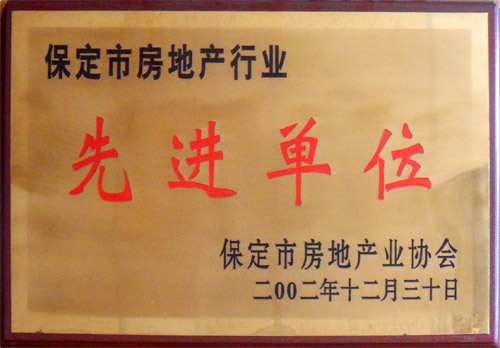 保定市房地产行业
先进单位
保定市房地产业协会
二00二年十二月三十日